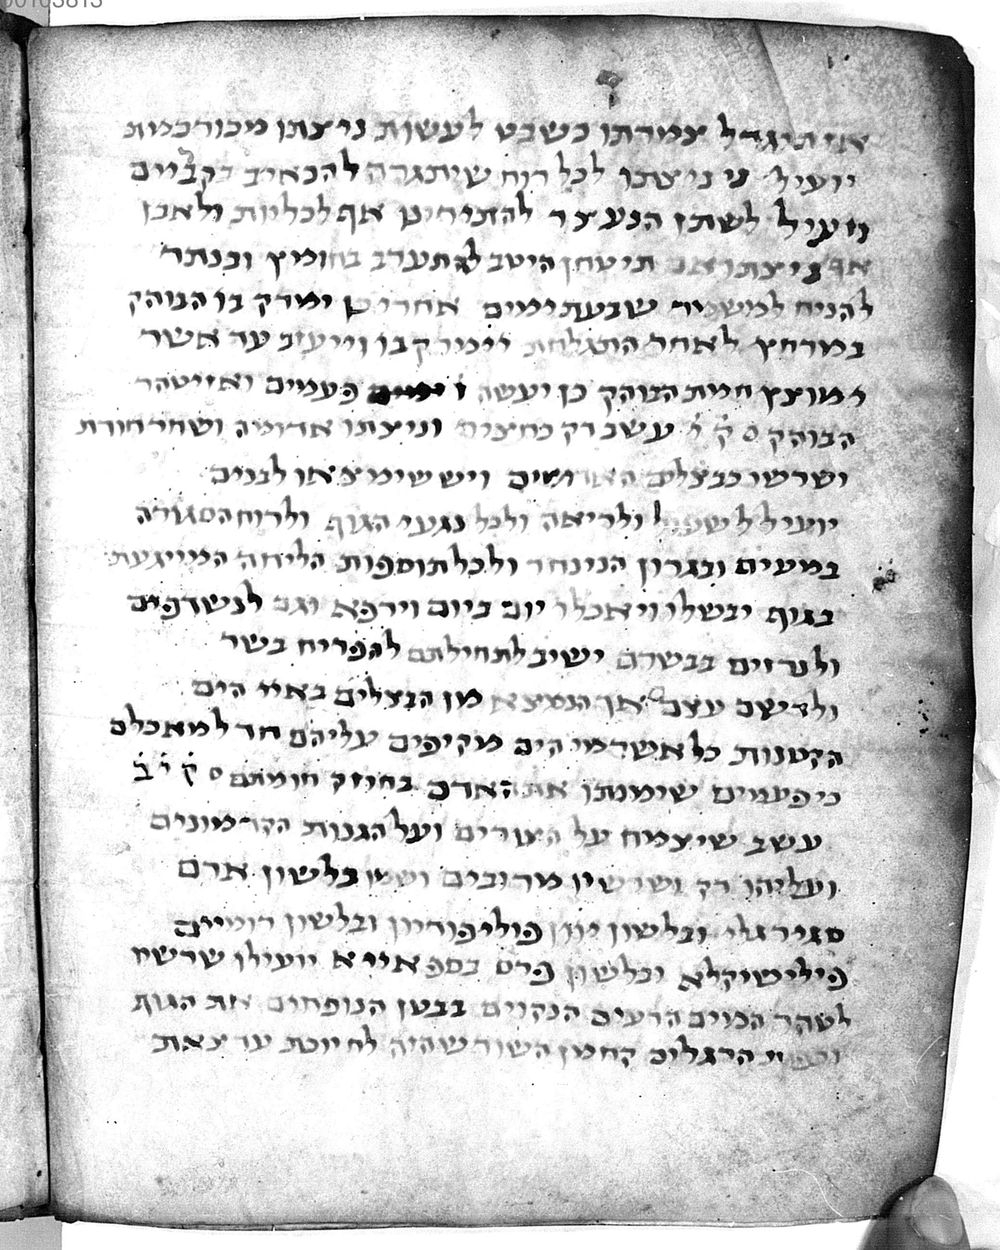 00103813
תיגדל צמרתו כשבט לעשות ניצתו מכורכמת
יועיל ניצתו לכל רוח שיתגרה להכאיב בקרביים
ויעיל לשתן הנעצר להתירינו אף לכליות ולאבן
אף ניצתו אם תיטחן היטב להתערב בחומץ ובנתר
להניח למשמיר שבעת ימים אחרי כן ימרק בו הבוהק
במרחץ לאחר התגלחת וימרק בו וייעזב עד אשר
ימוצץ חמת הבוהק כן יעשה ו פעמים ואז ייטהר
הבוהק ס ק י עשב רק כחצים וניצתו אדומה ושחרחורת
ושרשו כבצלים האדומים ויש שימצאו לבנים
יועיל לשעול ולריאה ולכל נגעי הגוף ולרוח הסגורה
במעים ובגרון הנינחר ולכל תוספות הליחה המייגעת
בגוף יבשלו ויאכלו יום ביום וירפא וגם לנשדפים
ולנרזים בבשרם ישיב לתחילתם להפריח בשר
ולדישם עצם אך הנמצא מן הבצלים באיי הים
הקטנות כל אשר מי הים מקיפים עליהם חד למאכלם
כי פעמים שימיתו את האדם בחוזק חומתם ס ק י ב
עשב שיצמח על הצורים ועל הגנות הקדמונים
ועליהו רק ושרשיו מרובים ושמו בלשון ארם
סגירגלי ובלשון יוון פוליפודיון ובלשון רומיים
פילישיקלא ובלשון פרס בספאייא יועילו שרשיו
לטהר המים הרעים הנקוים בבטן הנופחים את הגוף
ואת הרגלים קח מן השור שהיה לחיות עד צאת